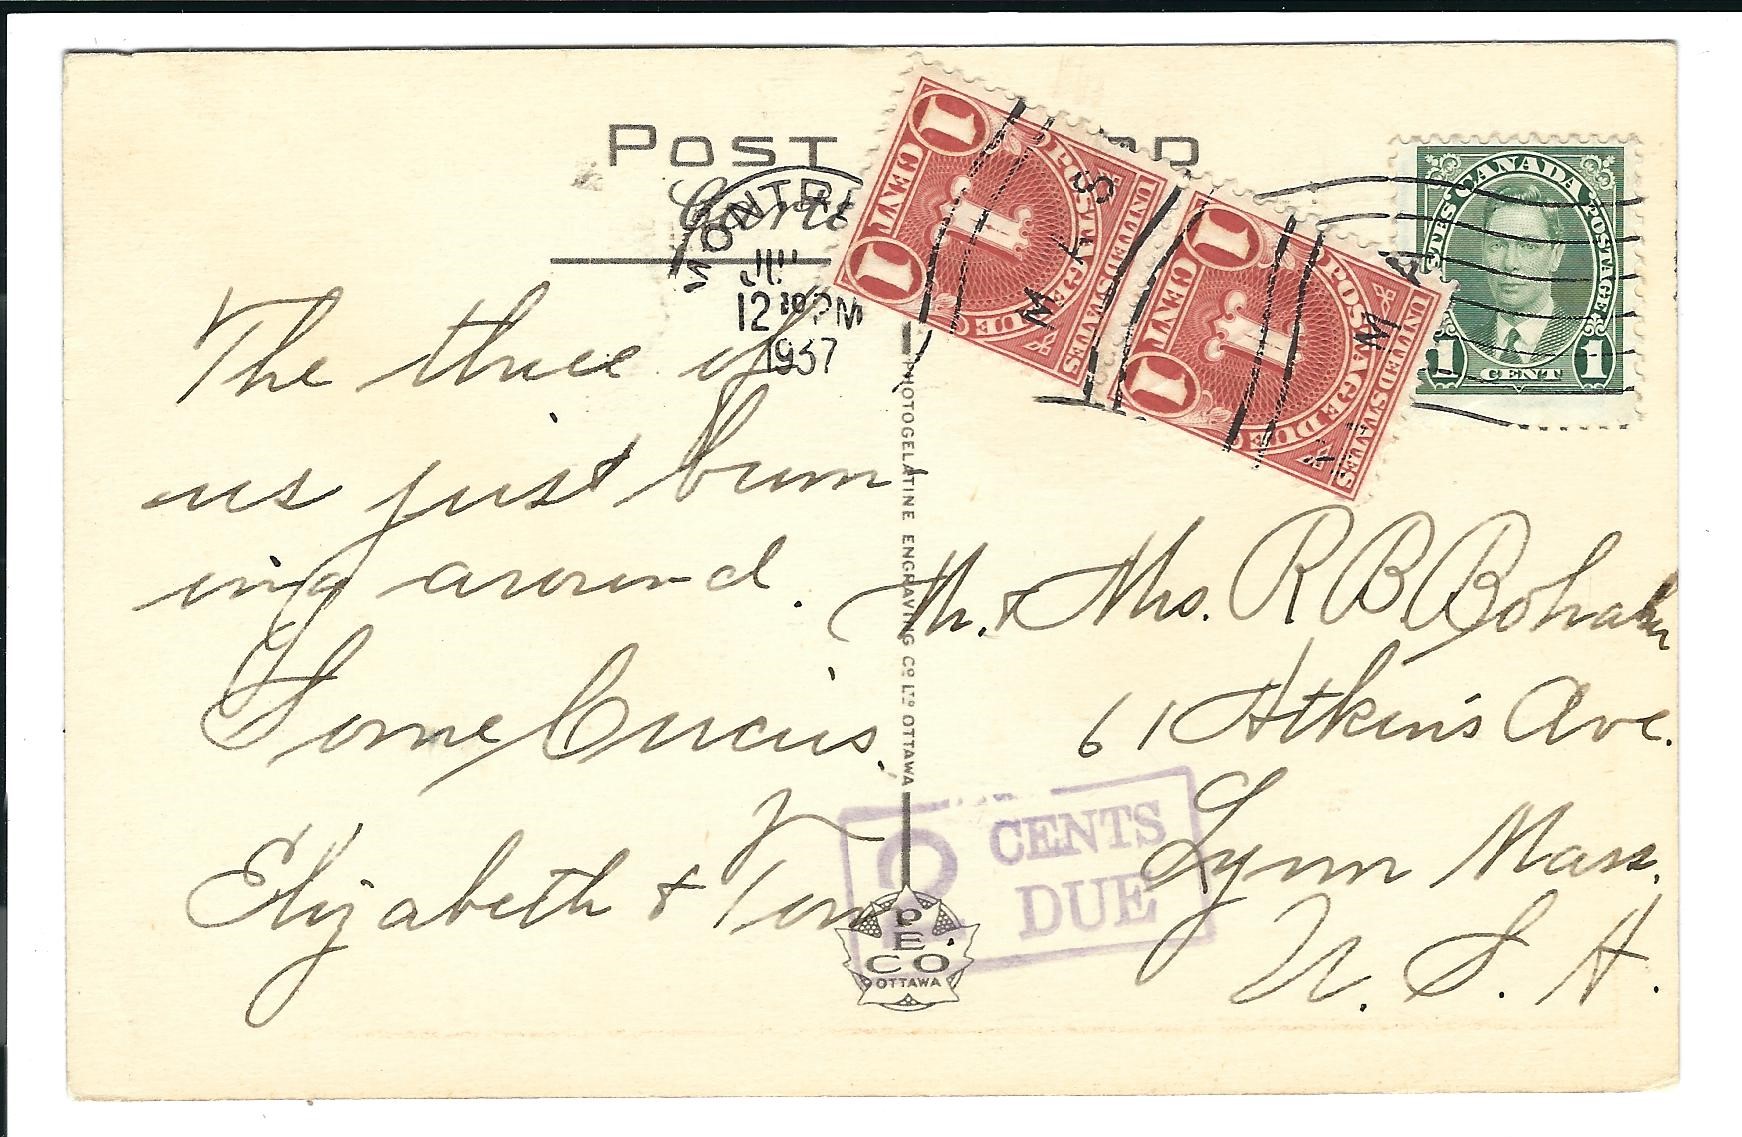 POST
MONTR
12 30 PM
1937
1 CENT 1
UNITED STATES
POSTAGE DUE
1 CENT 1
UNITED STATES
POSTAGE DUE
MASS
CANADA
POSTES POSTAGE
1 CENT 1
The three of
us just bum
ing around.
Elizabeth & Tom
Mr. & Mrs. R B
61 Atkins Ave.
Lynn Mass.
U. S. A.
2 CENTS
DUE
PHOTOGELATINE ENGRAVING CO LTD OTTAWA
PECO
OTTAWA